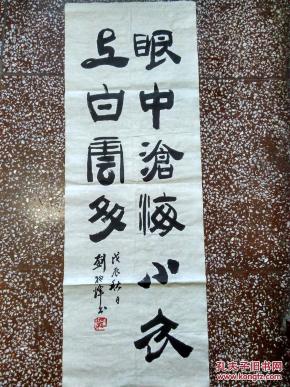 眼中滄海小衣
上白雲多
戊辰秋月
劉
書
孔夫子旧书网